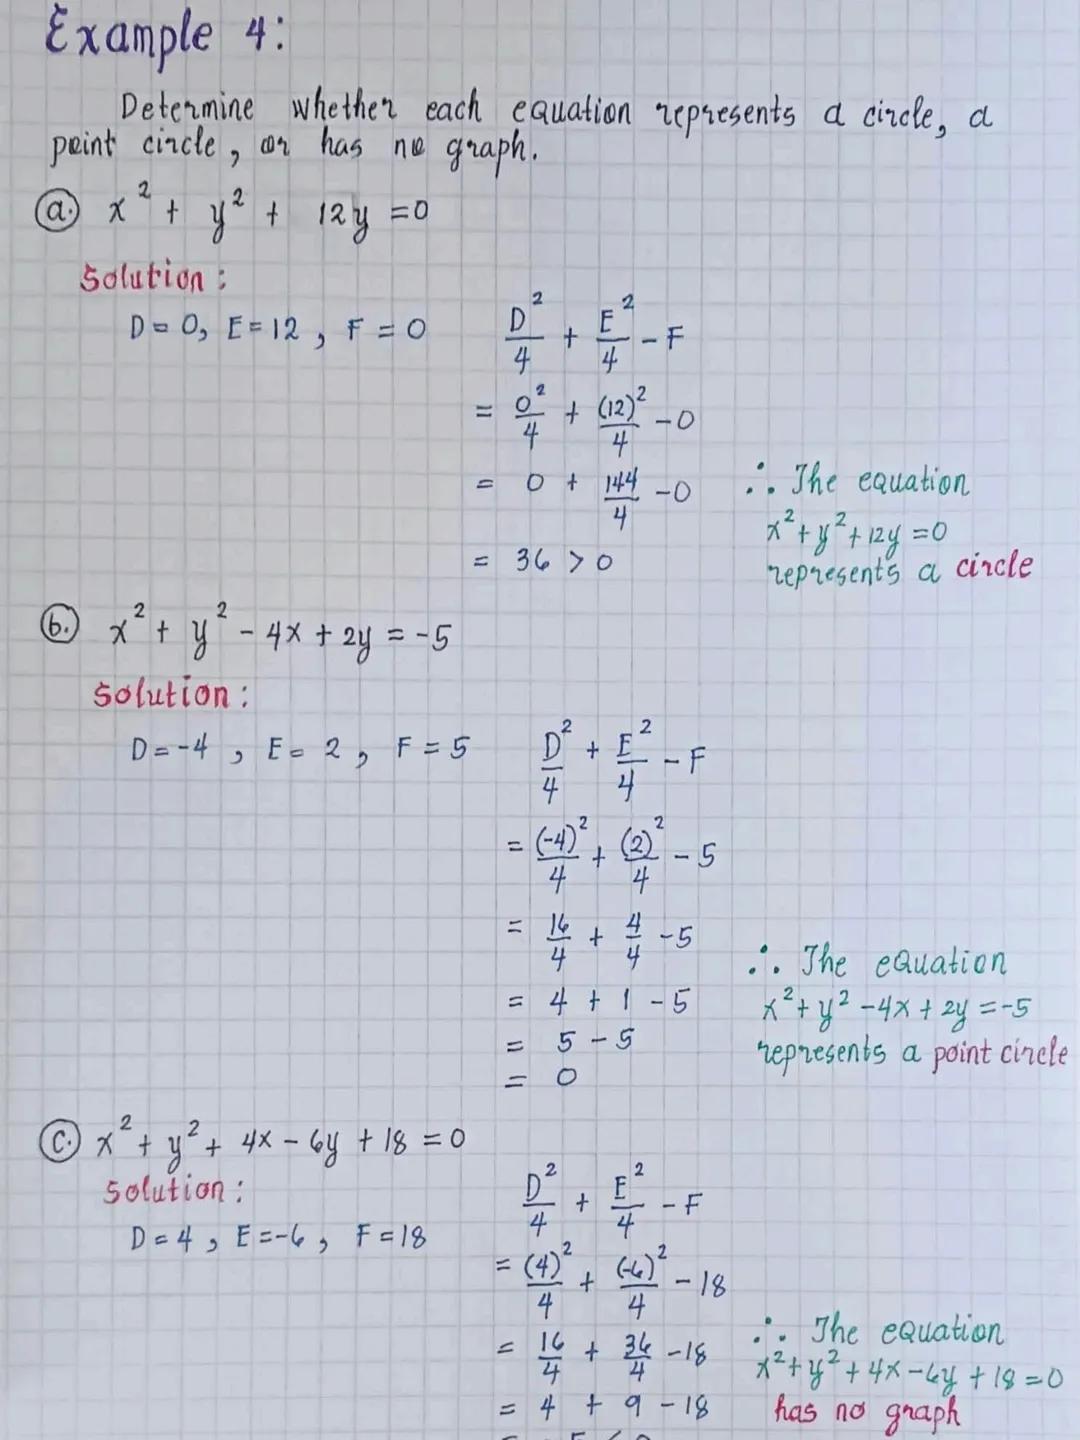 Example 4:
Determine whether each equation represents a circle, a
point circle, or has no graph.
a. x² + y² + 12y = 0
Solution:
D = 0, E = 12, F = 0
D²/4 + E²/4 - F
= 0²/4 + (12)²/4 - 0
= 0 + 144/4 - 0
= 36 > 0
∴ The equation
x² + y² + 12y = 0
represents a circle
b. x² + y² - 4x + 2y = -5
Solution:
D = -4, E = 2, F = 5
D²/4 + E²/4 - F
= (-4)²/4 + (2)²/4 - 5
= 16/4 + 4/4 - 5
= 4 + 1 - 5
= 5 - 5
= 0
∴ The equation
x² + y² - 4x + 2y = -5
represents a point circle
c. x² + y² + 4x - 6y + 18 = 0
Solution:
D = 4, E = -6, F = 18
D²/4 + E²/4 - F
= (4)²/4 + (-6)²/4 - 18
= 16/4 + 36/4 - 18
= 4 + 9 - 18
∴ The equation
x² + y² + 4x - 6y + 18 = 0
has no graph